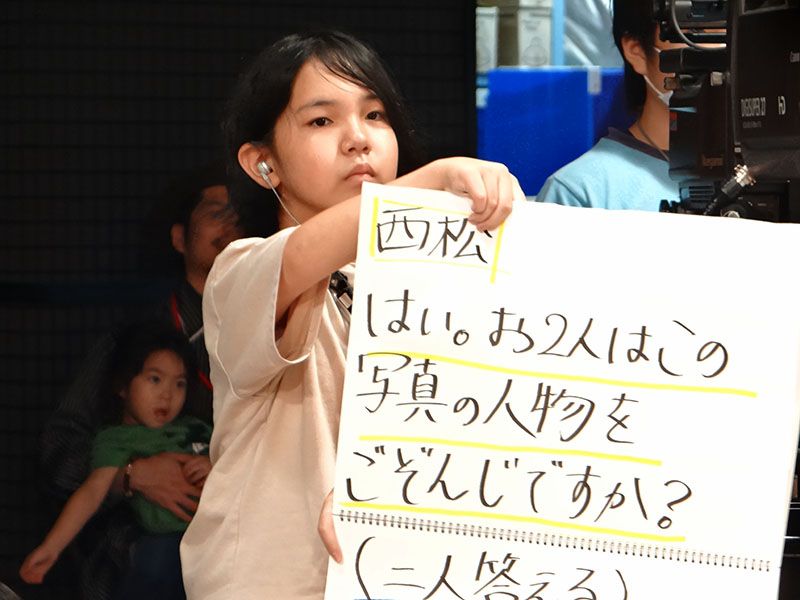 西松
はい。お2人はこの
写真の人物を
ごぞんじですか?
(二人答える)
Canon
DIGISUPER 27
HD